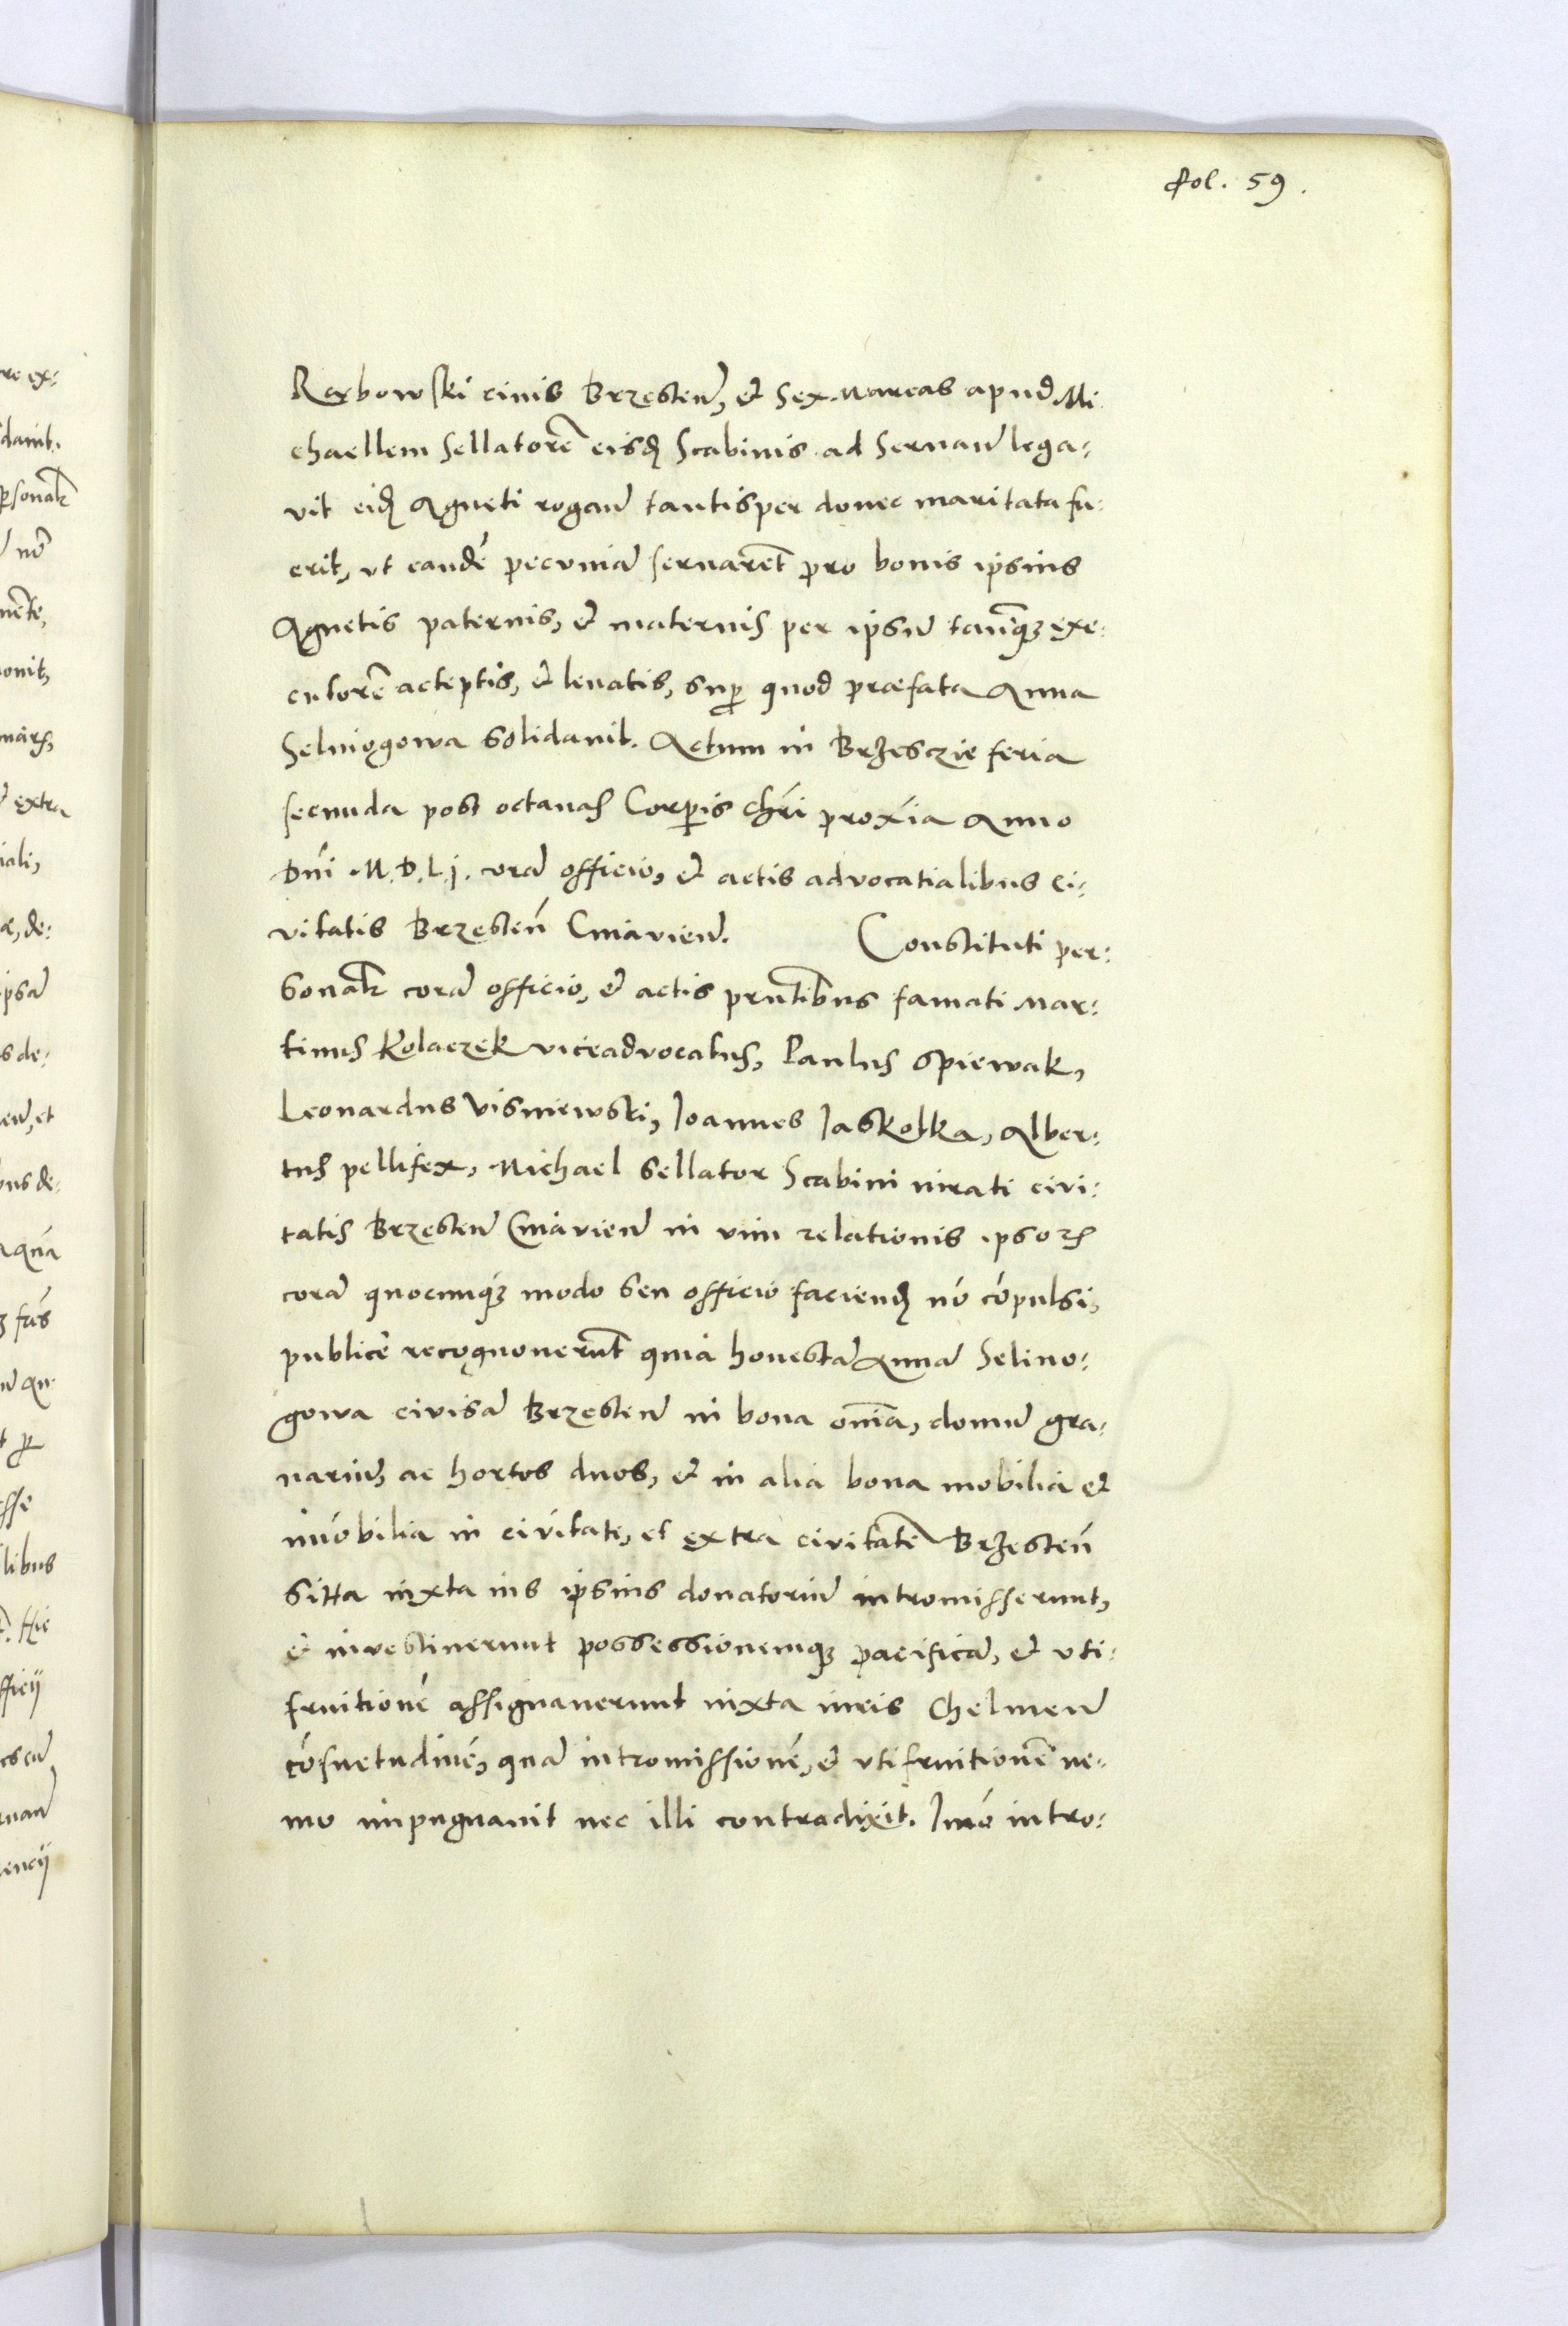 fol. 59.
Rexbowski civis Brzesten, et Sex marcas apud Mi
chaellem Sellatorē eisdē Scabinis ad Seruanđ lega:
vit eidē Agneti roganđ tantisper donec maritata fu:
erit, vt eandē pecuniā seruarēt pro bonis ipsius
Agnetis paternis, et maternis per ipsum tanq̃ exe:
cutorē acceptis, et levatis, sup̱ quod præfata Anna
Selniogowa solidavit. Actum in Brzesczie feria
secunda post octavas Corp̱is chr̃i proxīa Anno
Dn̄i M.D.L.j. corā officio, et actis advocatialibus ci:
vitatis Brzesteń Cuiavien. Constituti per:
sonalr̃ corā officio, et actis prn̄tibus famati Mar:
tinus Kolaczek viceadvocatus, Paulus Spiewak,
Leonardus Visniewski, Joannes Jaskolka, Alber:
tus pellifex, Michael sellator Scabini iurati civi:
tatis Brzesten Cuiavien in vim relationis ipsoꝝ
corā quocunq̃ modo seu officio faciendꝭ nō cōpulsi,
publicè recognouerūt quia honestā Annā Selino:
gowa civisā Brzesten in bona om̄ia, domū gra:
narium, ac hortos duos, et in alia bona mobilia et
im̄obilia in civitate, et extra civitatē Brzesteń
sitta iuxta ius ipsius donatoriū intromisserunt,
et investiuerunt possessionemq̃ pacificā, et vti:
fruitionē assignauerunt iuxta iuris Chelmen
cōsuetudinē, quā intromissionē, et vtifruitionē ne:
mo impugnauit nec illi contradixit. Imò intro: